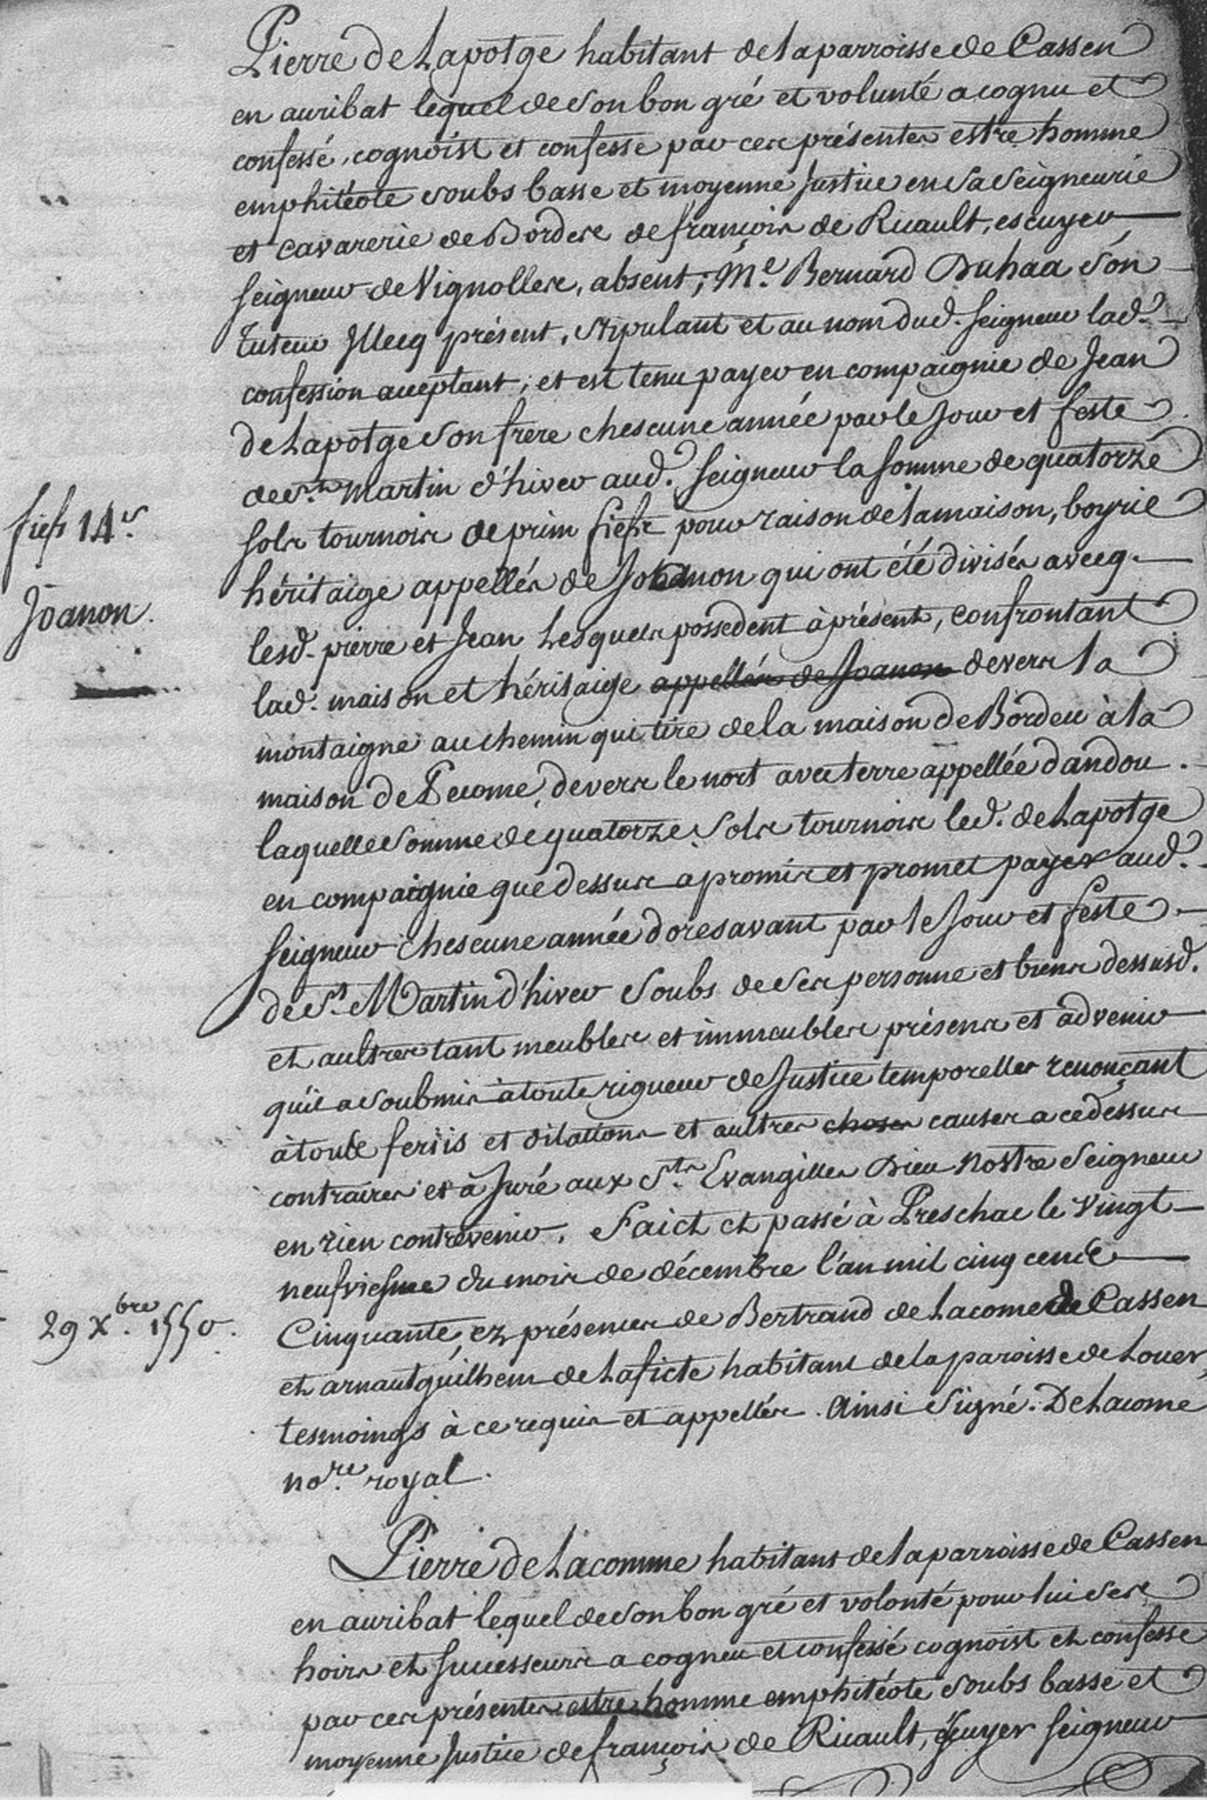 Pierre de Lapotge habitant de la parroisse de Cassen
en auribat lequel de son bon gré et volunté a cognu et
confessé, cognoist et confesse par ces présentes estre homme
emphitéote soubs basse et moyenne Justice en sa Seigneurie
et cavarerie de Bordes de françois de Ricault, escuyer
seigneur de Vignolles, absent; Me. Bernard Duhaa son
tuteur Illecq présent, stipulant et au nom dud. seigneur lad.
confession aceptant, et est tenu payer en compaignie de Jean
de Lapotge son frère chescune année par le Jour et feste
de St. Martin d'hiver aud. seigneur la somme de quatorze
fiefs 14s.
sols tournois de prim fiefs pour raison de la maison, boyrie
héritaige appellés de Johanon qui ont été divisés avecq
Joanon.
lesd. pierre et Jean Lesquels possedent à présent, confrontant
lad. maison et héritaige appellés de Joanon devers la
montaigne au chemin qui tire de la maison de Bordeu à la
maison de Pecome, devers le nort avec terre appellée dandou
laquelle somme de quatorze sols tournois led. de Lapotge
en compaignie que dessus a promis et promet payer aud.
seigneur chescune année doresavant par le Jour et feste
de St. Martin d'hiver soubs de ses personne et biens dessusd.
et aultres tant meubles et immeubles présens et advenir
qu'il a soubmis à toute rigueur de Justice temporelles renonçant
à toute feriis et dilations et aultres choses causes a ce dessus
contraires et à Juré aux Sts. Evangilles Dieu nostre Seigneur
en rien contrevenir. Faict et passé à Preschac le vingt
neufviesme du mois de décembre l'an mil cinq cens
29 Xbre. 1550.
Cinquante, ez présences de Bertrand de Lacome de Cassen
et arnautguilhem de Laficte habitans de la paroisse de Louer,
tesmoings à ce requis et appellés. Ainsi signé. De Lacome
nore. royal.
Pierre de Lacomme habitans de la parroisse de Cassen
en auribat lequel de son bon gré et volonté pour lui ses
hoirs et successeurs a cogneu et confessé cognoist et confesse
par ces présentes estre homme emphitéote soubs basse et
moyenne Justice de françois de Ricault, écuyer seigneur